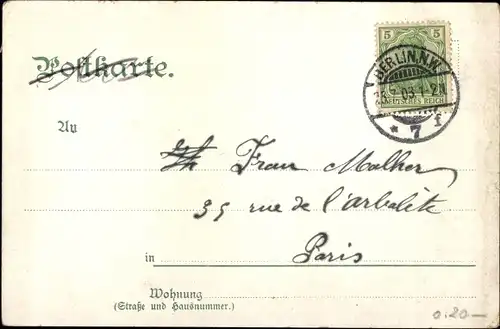 5
BERLIN, N.W.
03. 1-2N
DEUTSCHES REICH
* 7 f
Postkarte.
An
Frau Malher
35 rue de l'arbalète
Paris
in
Wohnung
(Straße und Hausnummer.)
0.20-